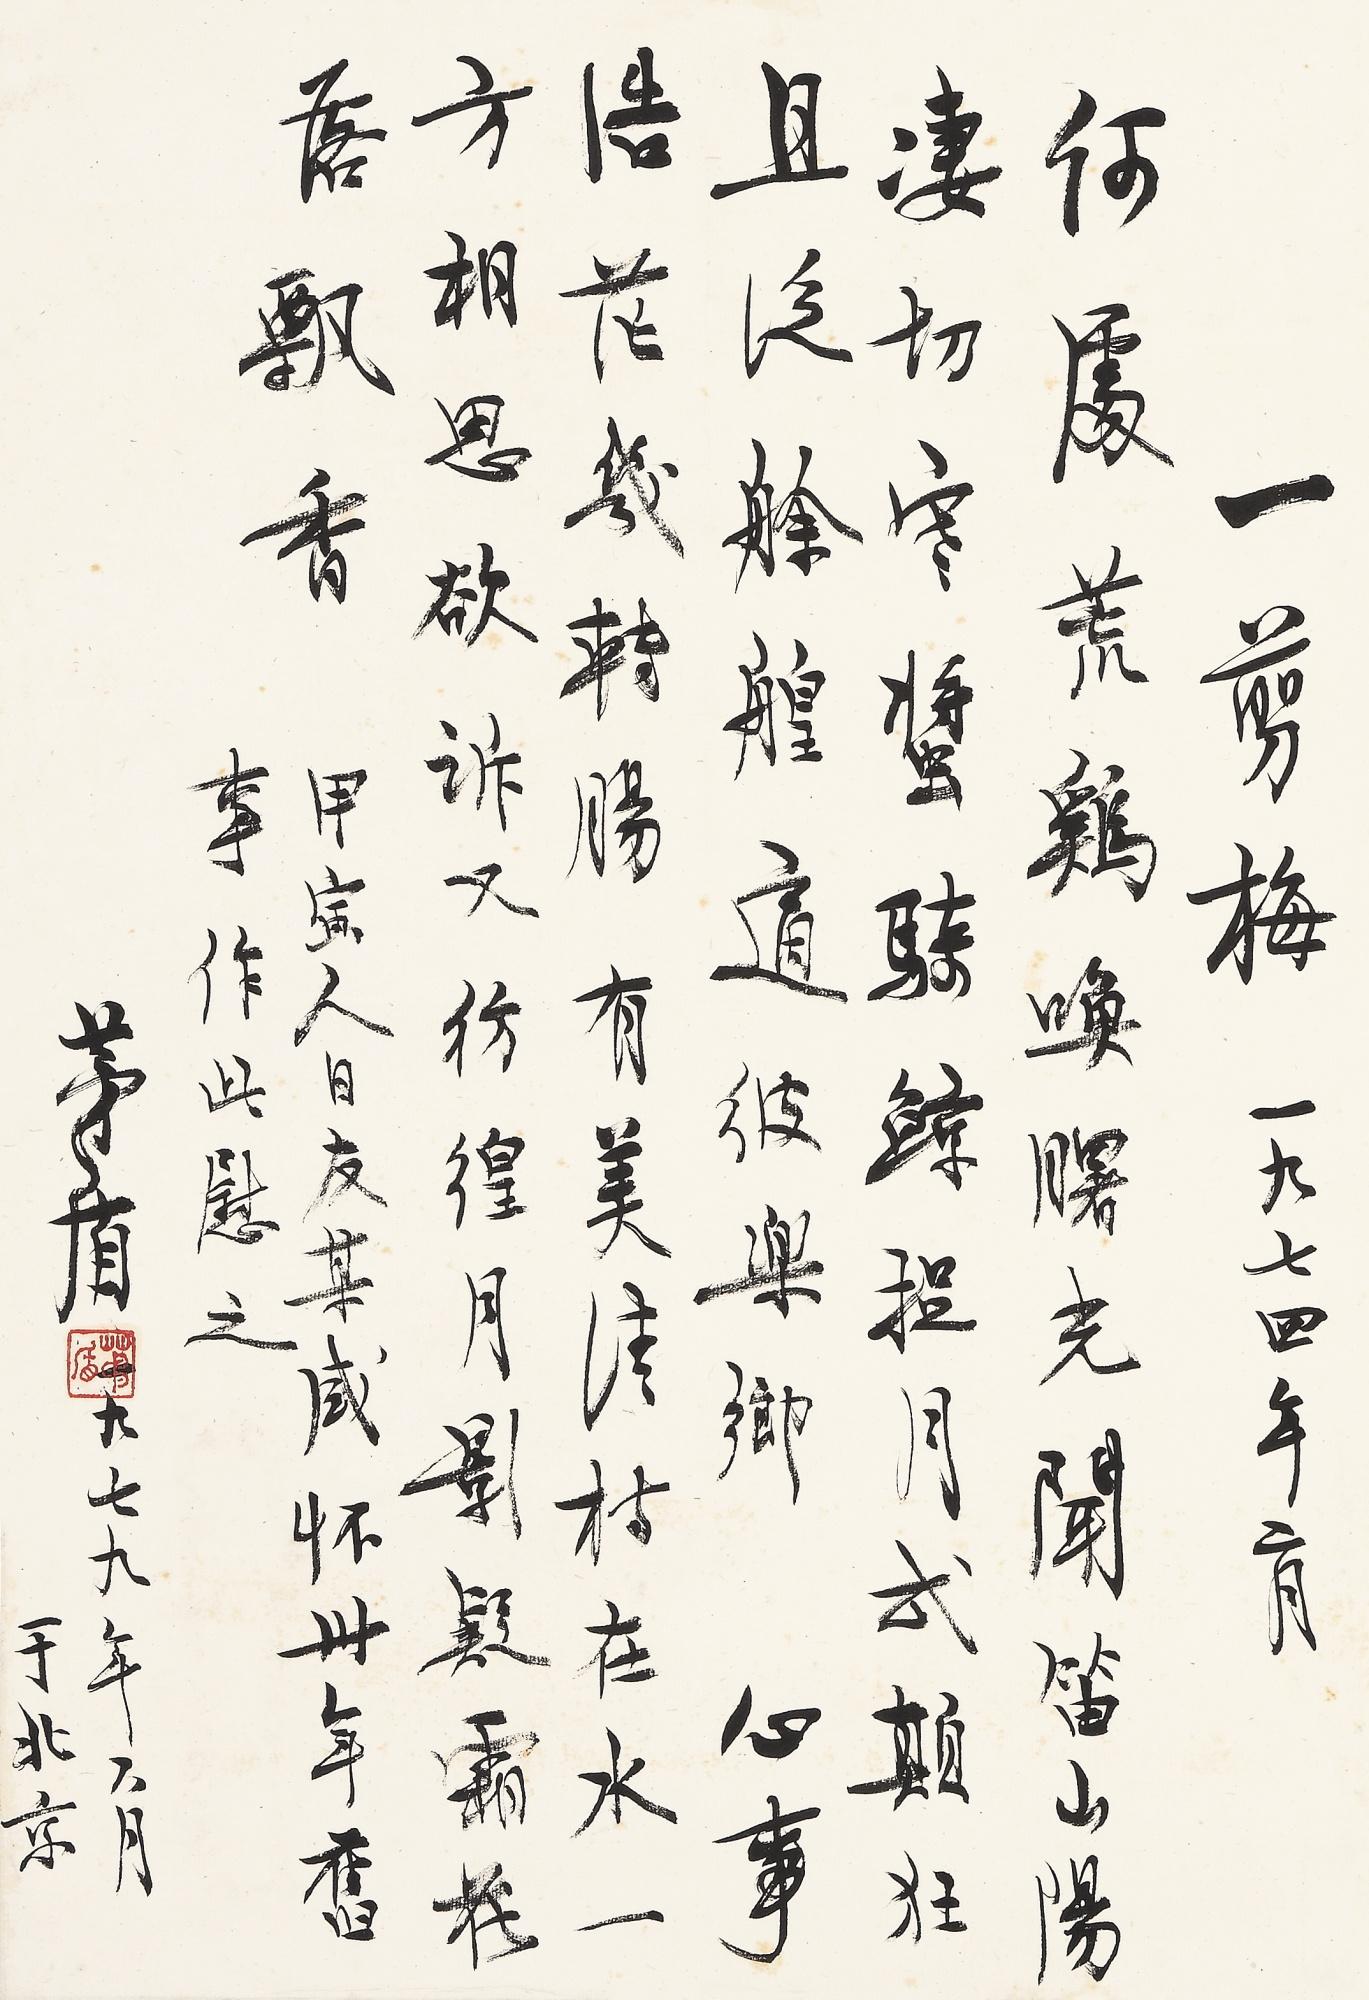 一剪梅 一九七四年二月
何處荒鷄喚曙光聞笛山陽
凄切寒螀騎鯨捉月太顛狂
且泛艅艎適彼樂鄉 心事
浩茫幾轉腸 有美清材在水一
方相思欲訴又彷徨月影疑霜花
落飄香
甲寅人日友某感怀卅年舊
事作此慰之
茅盾
茅盾
一九七九年六月
于北京